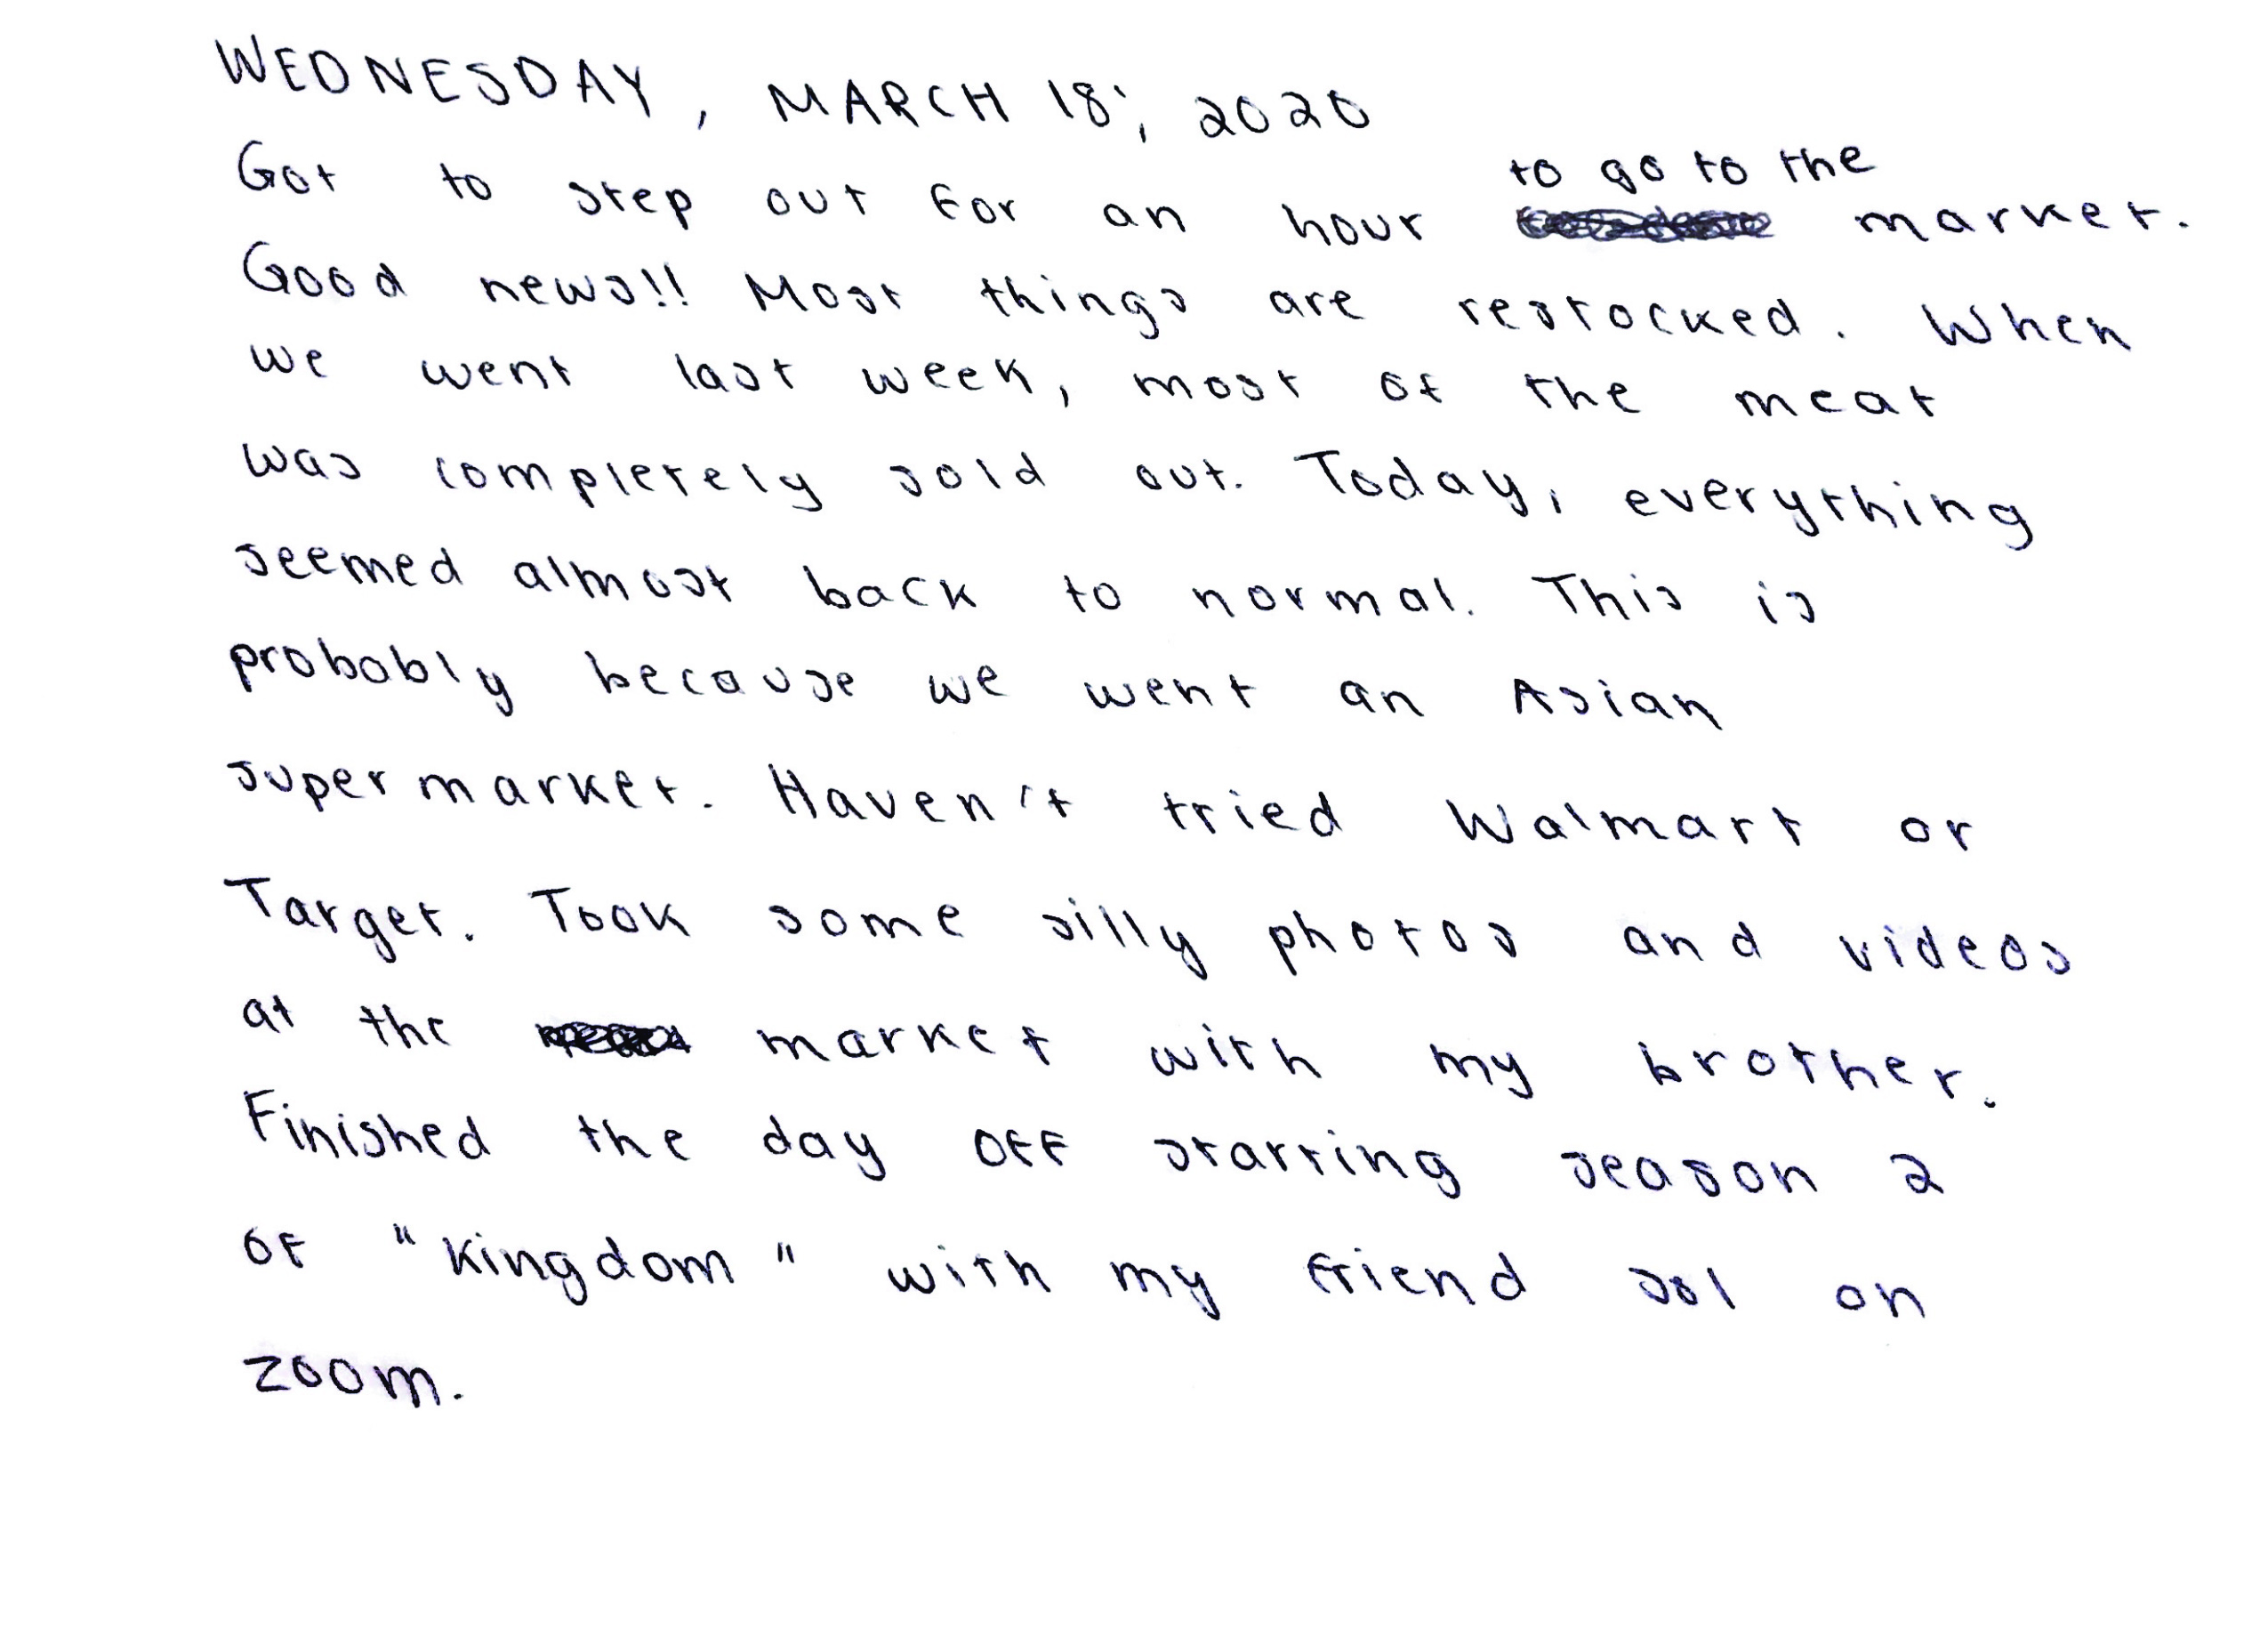 WEDNESDAY, MARCH 18, 2020
to go to the
Got to step out for an hour market.
Good news!! Most things are restocked. When
we went last week, most of the meat
was completely sold out. Today, everything
seemed almost back to normal. This is
probably because we went an Asian
supermarket. Haven't tried Walmart or
Target. Took some silly photos and videos
at the market with my brother.
Finished the day off starting season 2
of "Kingdom" with my friend Sol on
zoom.